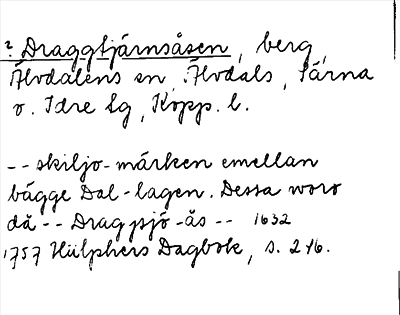 ? Draggtjärnsåsen, berg,
Älvdalens sn, Älvdals, Särna
o. Idre tg, Kopp. l.
-- skiljo-märken emellan
bägge Dal-lagen. Dessa woro
då -- Dragsjö-ås -- 1632
1757 Hülphers Dagbok, s. 216.